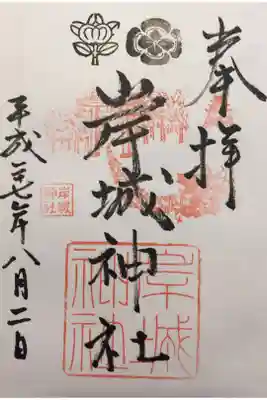 奉拝
岸城神社
平成二十七年八月二日
岸城神社
岸城神社